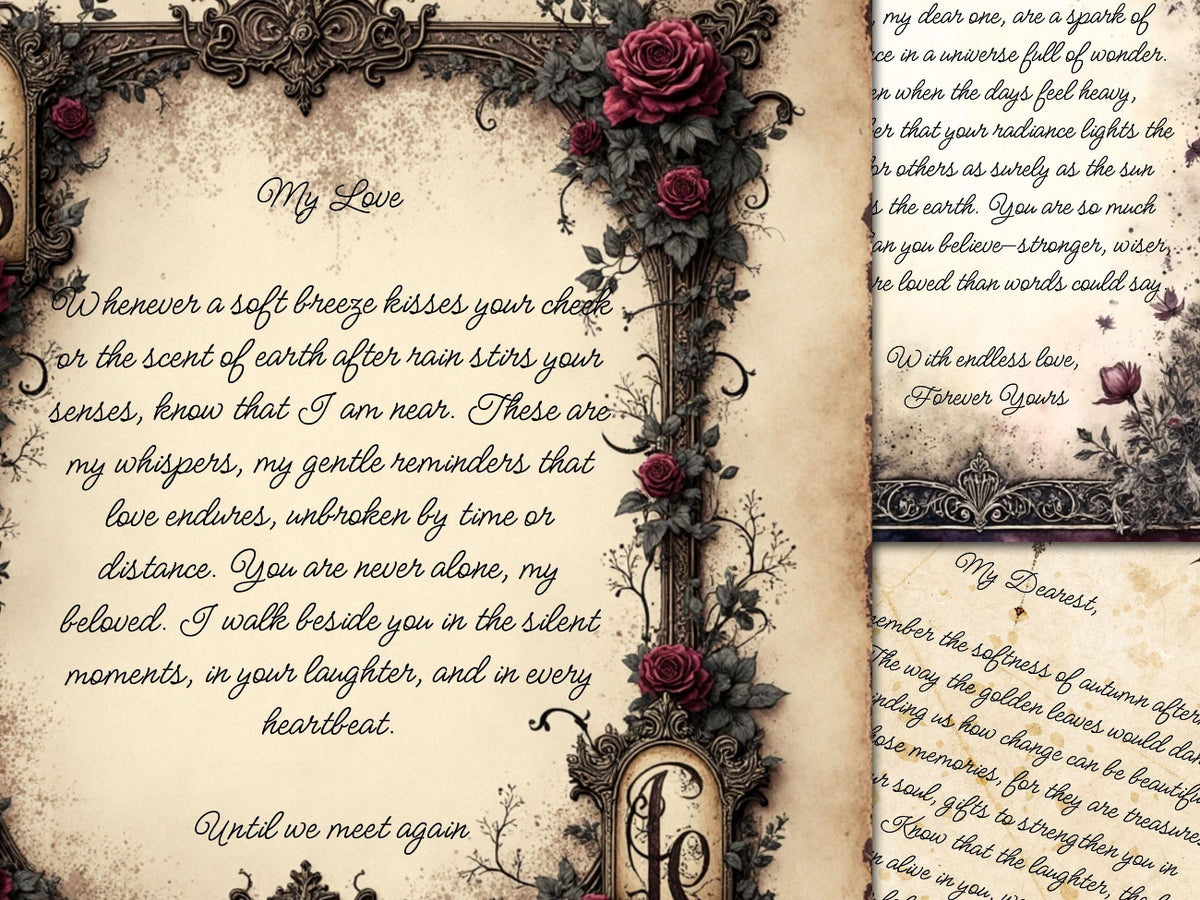 My Love
Whenever a soft breeze kisses your cheek
or the scent of earth after rain stirs your
senses, know that I am near. These are
my whispers, my gentle reminders that
love endures, unbroken by time or
distance. You are never alone, my
beloved. I walk beside you in the silent
moments, in your laughter, and in every
heartbeat.
Until we meet again
, my dear one, are a spark of
in a universe full of wonder.
when the days feel heavy,
that your radiance lights the
others as surely as the sun
the earth. You are so much
you believe—stronger, wiser,
loved than words could say
With endless love,
Forever Yours
My Dearest,
the softness of autumn
The way the golden leaves would
us how change can be
memories, for they are
soul, gifts to strengthen you in
Know that the laughter,
alive in you,